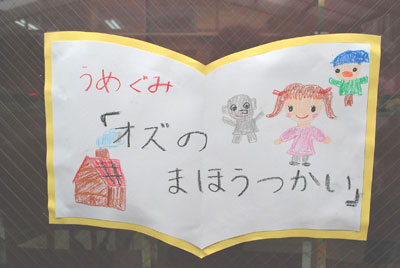 うめぐみ
「オズの
まほうつかい」